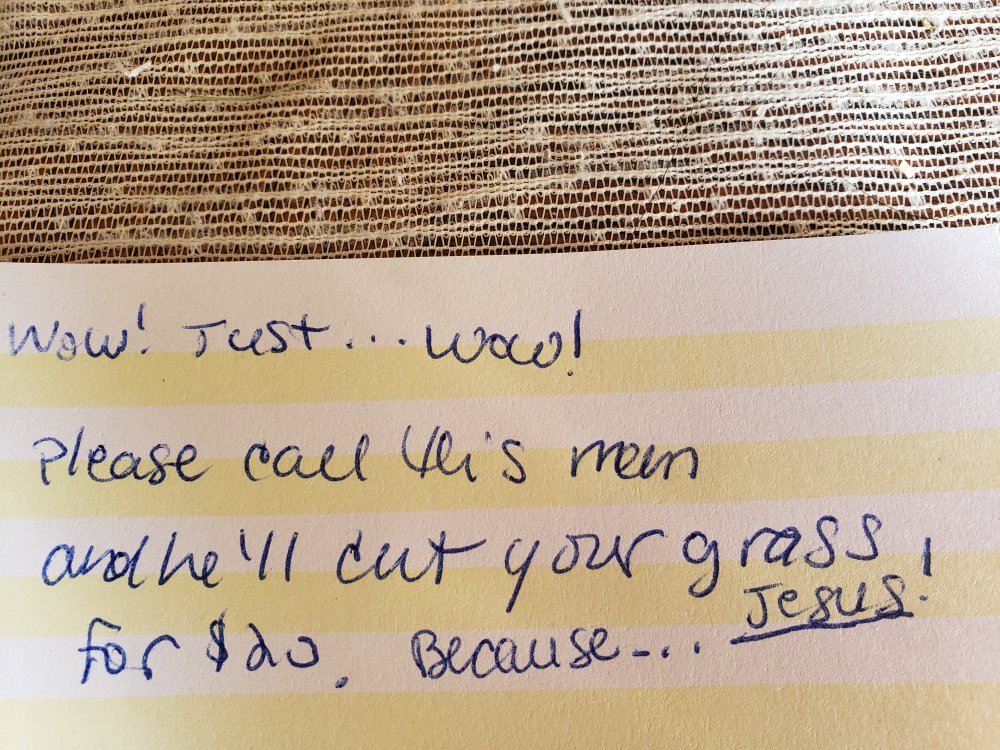 Wow! Just... wow!
Please call this man
and he'll cut your grass
for $20. Because... Jesus!